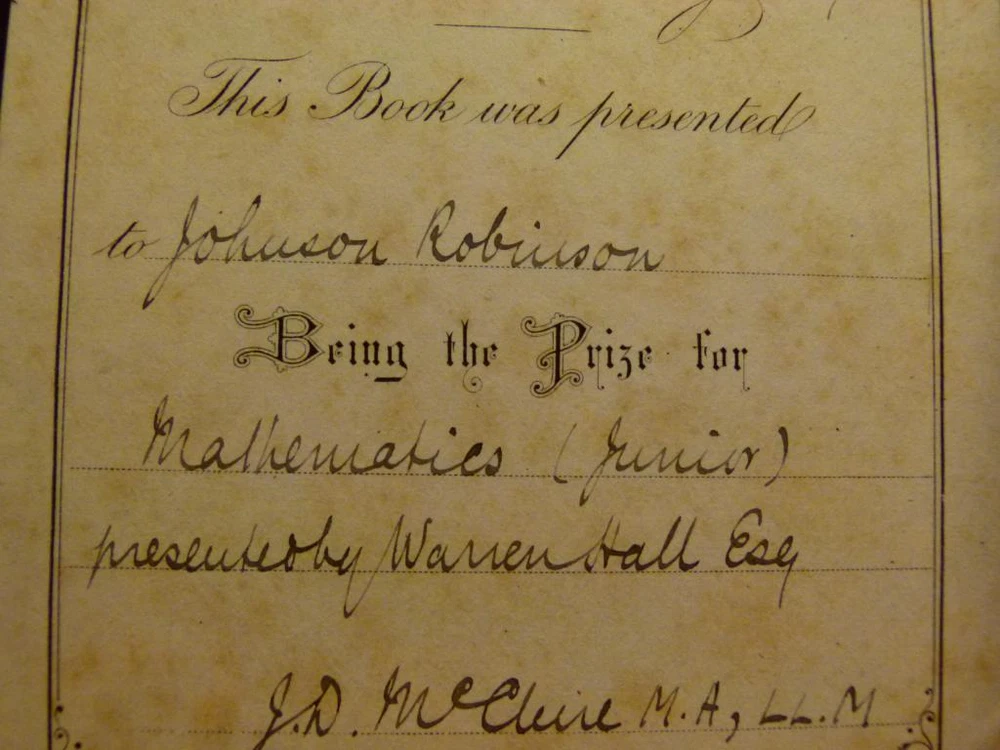 This Book was presented
to Johnson Robinson
Being the Prize for
Mathematics (Junior)
presented by Warren Hall Esq
J.D. McClure M.A, LL.M